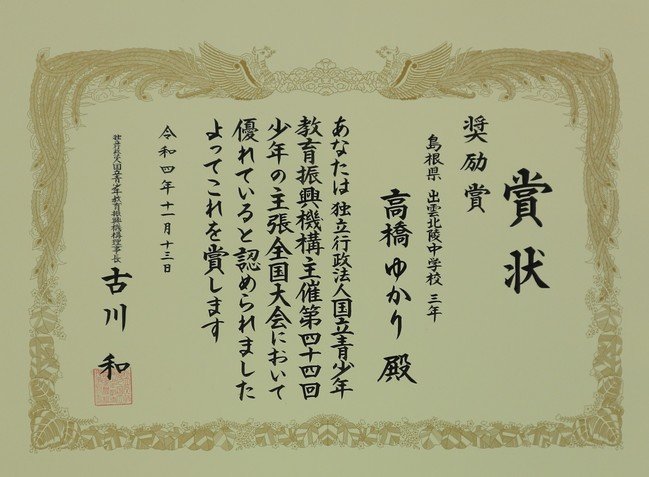 賞状
奨励賞
島根県 出雲北陵中学校 三年
高橋ゆかり 殿
あなたは独立行政法人国立青少年
教育振興機構主催第四十四回
少年の主張全国大会において
優れていると認められました
よってこれを賞します
令和四年十一月十三日
独立行政法人国立青少年教育振興機構理事長
古川 和